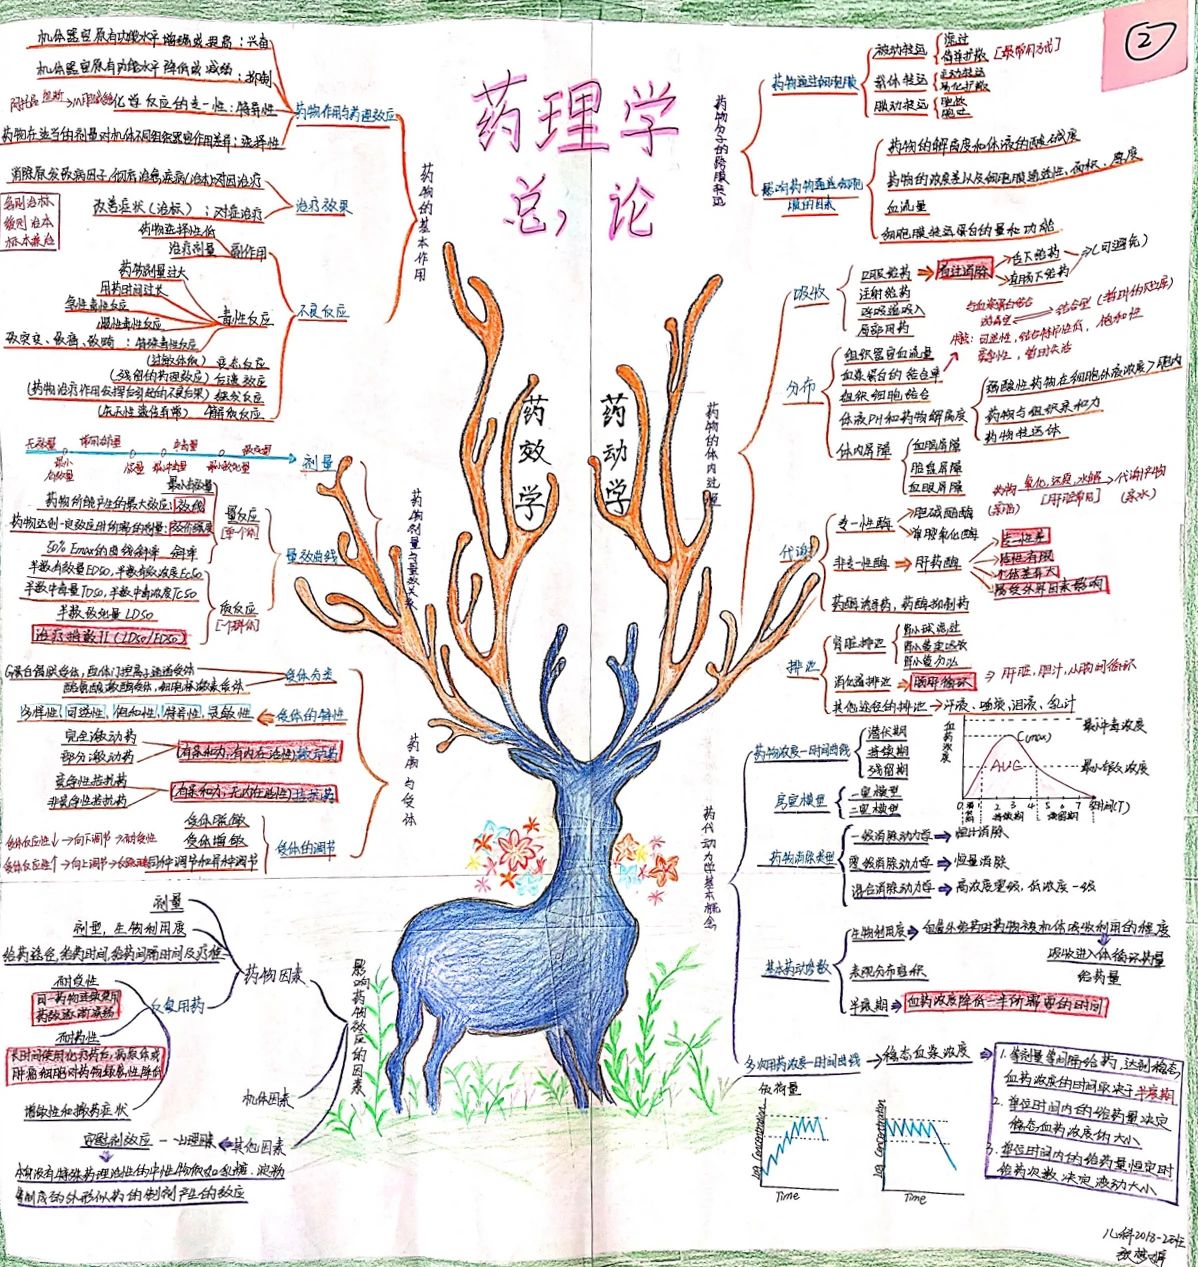 ②
药理学
总论
药效学
药动学
药物的基本作用
药物作用与药理效应
机体器官原有功能水平增强或提高：兴奋
机体器官原有功能水平降低或减弱：抑制
化学反应的专一性：特异性
药物在适当的剂量对机体不同组织器官作用差异：选择性
治疗效果
消除原发致病因子,彻底治愈疾病(治本)对因治疗
改善症状（治标）：对症治疗
急则治标
缓则治本
标本兼治
不良反应
药物选择性低
治疗剂量
副作用
药物剂量过大
用药时间过长
急性毒性反应
慢性毒性反应
致突变、致癌、致畸：特殊毒性反应
毒性反应
(过敏体质) 变态反应
(残留的药理效应) 后遗效应
(药物治疗作用发挥后引起的不良后果) 继发反应
(先天性遗传异常) 特异质反应
药物剂量与量效关系
剂量
无效量
常用剂量
中毒量
致死量
最小有效量
极量
最小中毒量
最小致死量
量效曲线
量反应
[单个体]
最小有效量
药物所能产生的最大效应：效能
药物达到一定效应时所需的剂量：效价强度
50% Emax的曲线斜率 斜率
质反应
[个群体]
半数有效量ED50，半数有效浓度EC50
半数中毒量TD50，半数中毒浓度TC50
半数致死量LD50
治疗指数TI(LD50/ED50)
药物与受体
受体分类
G蛋白偶联受体，配体门控离子通道受体
酪氨酸激酶受体，细胞核激素受体
受体的特性
多样性，可逆性，饱和性，特异性，灵敏性
完全激动药
部分激动药
(有亲和力，有内在活性)激动药
竞争性拮抗药
非竞争性拮抗药
(有亲和力，无内在活性)拮抗药
受体的调节
受体脱敏
受体增敏
同种调节和异种调节
受体反应性↓→向下调节→耐受性
受体反应性↑→向上调节→
影响药物效应的因素
药物因素
剂量
剂型，生物利用度
给药途径，给药时间，给药间隔时间及疗程
反复用药
耐受性
同一药物连续使用
药效逐渐减弱
耐药性
长时间使用化疗药后，病原体或
肿瘤细胞对药物敏感性降低
增敏性和撤药症状
机体因素
其他因素
安慰剂效应 — 心理因素
本身没有特殊药理活性的中性物质如乳糖、淀粉
等制成的外形似药的制剂产生的效应
药物分子的跨膜转运
药物通过细胞膜
被动转运
滤过
简单扩散 [最常用方式]
载体转运
主动转运
易化扩散
膜动转运
胞饮
胞吐
影响药物通透细胞
膜的因素
药物的解离度和体液的酸碱度
药物的浓度差以及细胞膜通透性、面积、厚度
血流量
细胞膜转运蛋白的量和功能
药物的体内过程
吸收
口服给药
首过消除
舌下给药
直肠下给药
(可避免)
注射给药
呼吸道吸入
局部用药
分布
组织器官血流量
血浆蛋白的结合率
组织细胞结合
体液PH和药物解离度
弱酸性药物在细胞外液浓度>胞内
药物与组织亲和力
药物转运体
体内屏障
血脑屏障
胎盘屏障
血眼屏障
与血浆蛋白结合
游离型
结合型 (暂时的储库)
代谢
专一性酶
胆碱酯酶
单胺氧化酶
非专一性酶
肝药酶
专一性差
活性有限
个体差异大
易受外界因素影响
药酶诱导药，药酶抑制药
药物
氧化，还原，水解
代谢产物
[肝脏常用]
(亲脂)
(亲水)
排泄
肾脏排泄
肾小球滤过
肾小管主动分泌
消化道排泄
肠肝循环
肝脏，胆汁，小肠间循环
其他途径的排泄
汗液、唾液、泪液、乳汁
药代动力学基本概念
药物浓度—时间曲线
潜伏期
持续期
残留期
血药浓度
C(max)
AUG
最小中毒浓度
最小有效浓度
0 1 2 3 4 5 6 7
时间(T)
潜伏期
持续期
残留期
房室模型
一室模型
二室模型
药物消除类型
一级消除动力学
恒比消除
零级消除动力学
恒量消除
混合消除动力学
高浓度零级，低浓度一级
基本药动参数
生物利用度
血管外给药时药物被机体吸收利用的程度
吸收进入体循环药量
给药量
表观分布容积
半衰期
血药浓度降低一半所需要的时间
多次用药浓度—时间曲线
稳态血浆浓度
1. 等剂量等间隔给药，达到稳态
血药浓度的时间取决于半衰期
2. 单位时间内的给药量决定
稳态血药浓度的大小
3. 单位时间内的给药量恒定时
给药次数决定波动大小
负荷量
Log Concentration
Time
Log Concentration
Time
儿科2018-2班